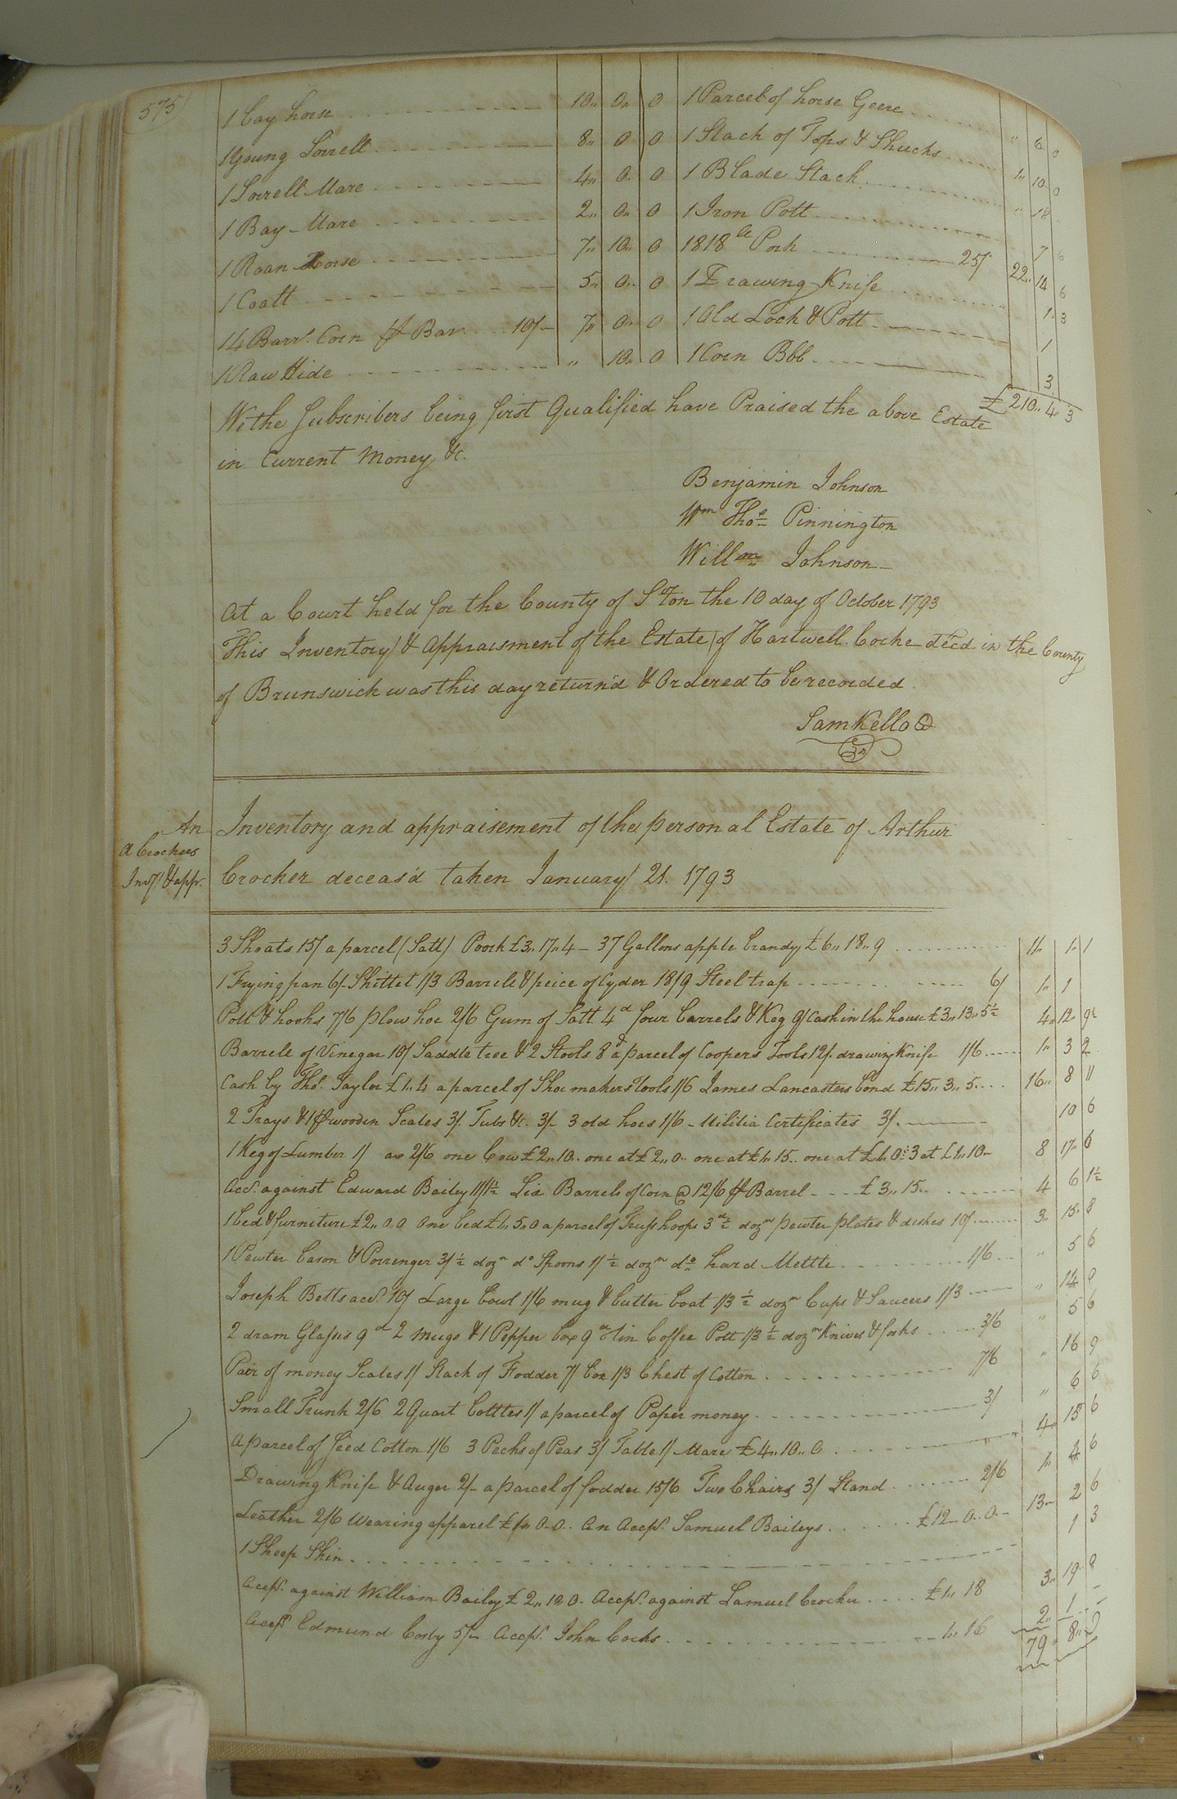 575
1 bay horse 10 „ 0 „ 0
1 Young Sorrell 8 „ 0 0
1 Sorrell Mare 4 „ 0 „ 0
1 Bay Mare 2 „ 0 „ 0
1 Roan Horse 7 „ 10 „ 0
1 Coatt 5 „ 0 „ 0
14 Barrs. Corn ⅌ Bar 10/– 7 „ 0 „ 0
1 Raw Hide „ 10 „ 0
1 Parcel of horse Geere „ 6 0
1 Stack of Tops & Shucks 1 „ 10 0
1 Blade Stack „ 18
1 Iron Pott 7 6
1818 lb Pork 25/ 22 „ 14 6
1 Drawing Knife 1 „ 3
1 Old Lock & Pott 1
1 Corn Bbl 3
£ 210 „ 4 3
We the Subscribers being first Qualified have Praised the above Estate
in Current Money &c.
Benjamin Johnson
Wm Thos Pinnington
Willm Johnson
At a Court held for the County of S'ton the 10 day of October 1793
This Inventory & Appraisment of the Estate of Hartwell Cocke dec'd in the County
of Brunswick was this day return'd & Ordered to be recorded
Sam Kello
An
A Crockers
Invy & appr.
Inventory and appraisement of the personal Estate of Arthur
Crocker deceas'd taken January 21. 1793
3 Shoats 15/ a parcel (Salt) Poork £3 „ 17 „ 4 – 37 Gallons apple brandy £6 „ 18 „ 9 11 „ 1 „ 1
1 Frying pan 6/. Skittet 1/3 Barrele & peice of Cyder 18/9 Steel trap 6/ 1 „ 1
Pott & hooks 7/6 plow hoe 2/6 Gum of Salt 4d four barrels & Keg 9/ Cash in the house £3 „ 13 „ 5½ 4 „ 12 „ 9½
Barrele of Vinegar 10/ Saddle tree & 2 Stools 8d a parcel of Coopers Tools 12/. drawing Knife 1/6 1 „ 3 2
Cash by Thos. Taylor £1 „ 4 a parcel of Shoe makers Tools 1/6 James Lancasters bond £15 „ 3 „ 5 16 „ 8 11
2 Trays & 1 ⅌ wooden Scales 3/. Tubs &c. 3/– 3 old hoes 1/6 – Militia Certificates 3/. 10 6
1 Keg of Lumber 1/ ax 2/6 one Cow £2 „ 10 . one at £2 „ 0 – one at £1 „ 15 . one at £1 „ 0 : 3 at £1 „ 10 – 8 17 6
Acct. against Edward Bailey 11/1½ Six Barrels of Corn @ 12/6 ⅌ Barrel £3 „ 15 „ 4 6 1½
1 bed & furniture £2 „ 0 „ 0 One bed £1 „ 5 „ 0 a parcel of Truss hoops 3d ½ dozn pewter plates & dishes 10/ 3 „ 15 „ 8
1 Pewter bason & Porrenger 3/ ½ dozn do Spoons 1/ ½ dozn do hard Mettle 1/6 „ 5 6
Joseph Betts acct. 10/ Large bowl 1/6 mug & butter boat 1/3 ½ dozn Cups & Saucers 1/3 „ 14 0
2 dram Glasses 9d 2 mugs & 1 Pepper box 9d tin Coffee Pott 1/3 ½ dozn Knives & forks 3/6 „ 5 6
Pair of money Scales 1/ Stack of Fodder 7/ box 1/3 Chest of Cotton 7/6 „ 16 9
Small Trunk 2/6 2 Quart bottles 1/ a parcel of Paper money 3/ „ 6 6
A parcel of Seed Cotton 1/6 3 Pecks of Peas 3/ Table 1/ Mare £4 „ 10 „ 0 4 „ 15 6
Drawing Knife & Auger 2/– a parcel of fodder 15/6 Two Chairs 3/ Stand 2/6 1 „ 4 6
Leather 2/6 Wearing apparel 0–0. An Accpt. Samuel Baileys £12–0–0– 13 „ 2 6
1 Sheep Skin 1 3
Accpt. against William Bailey £2 „ 1 „ 0 – Accpt. against Samuel Crocker £1 „ 18 3 „ 19 0
Accpt Edmund Cosby 5/– Accpt. John Cocks 1 „ 16 2 „ 1 –
79 „ 8 „ 9